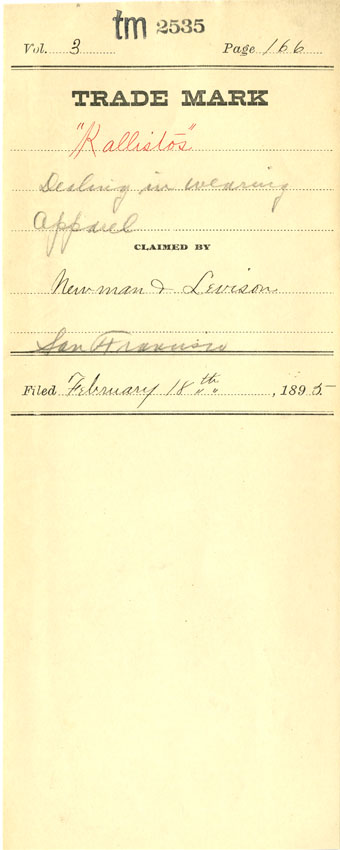 tm 2535
Vol. 3 Page 166
TRADE MARK
"Kallistōs"
Dealing in wearing
Apparel
CLAIMED BY
Newman & Levison
San Francisco
Filed February 18th, 1895